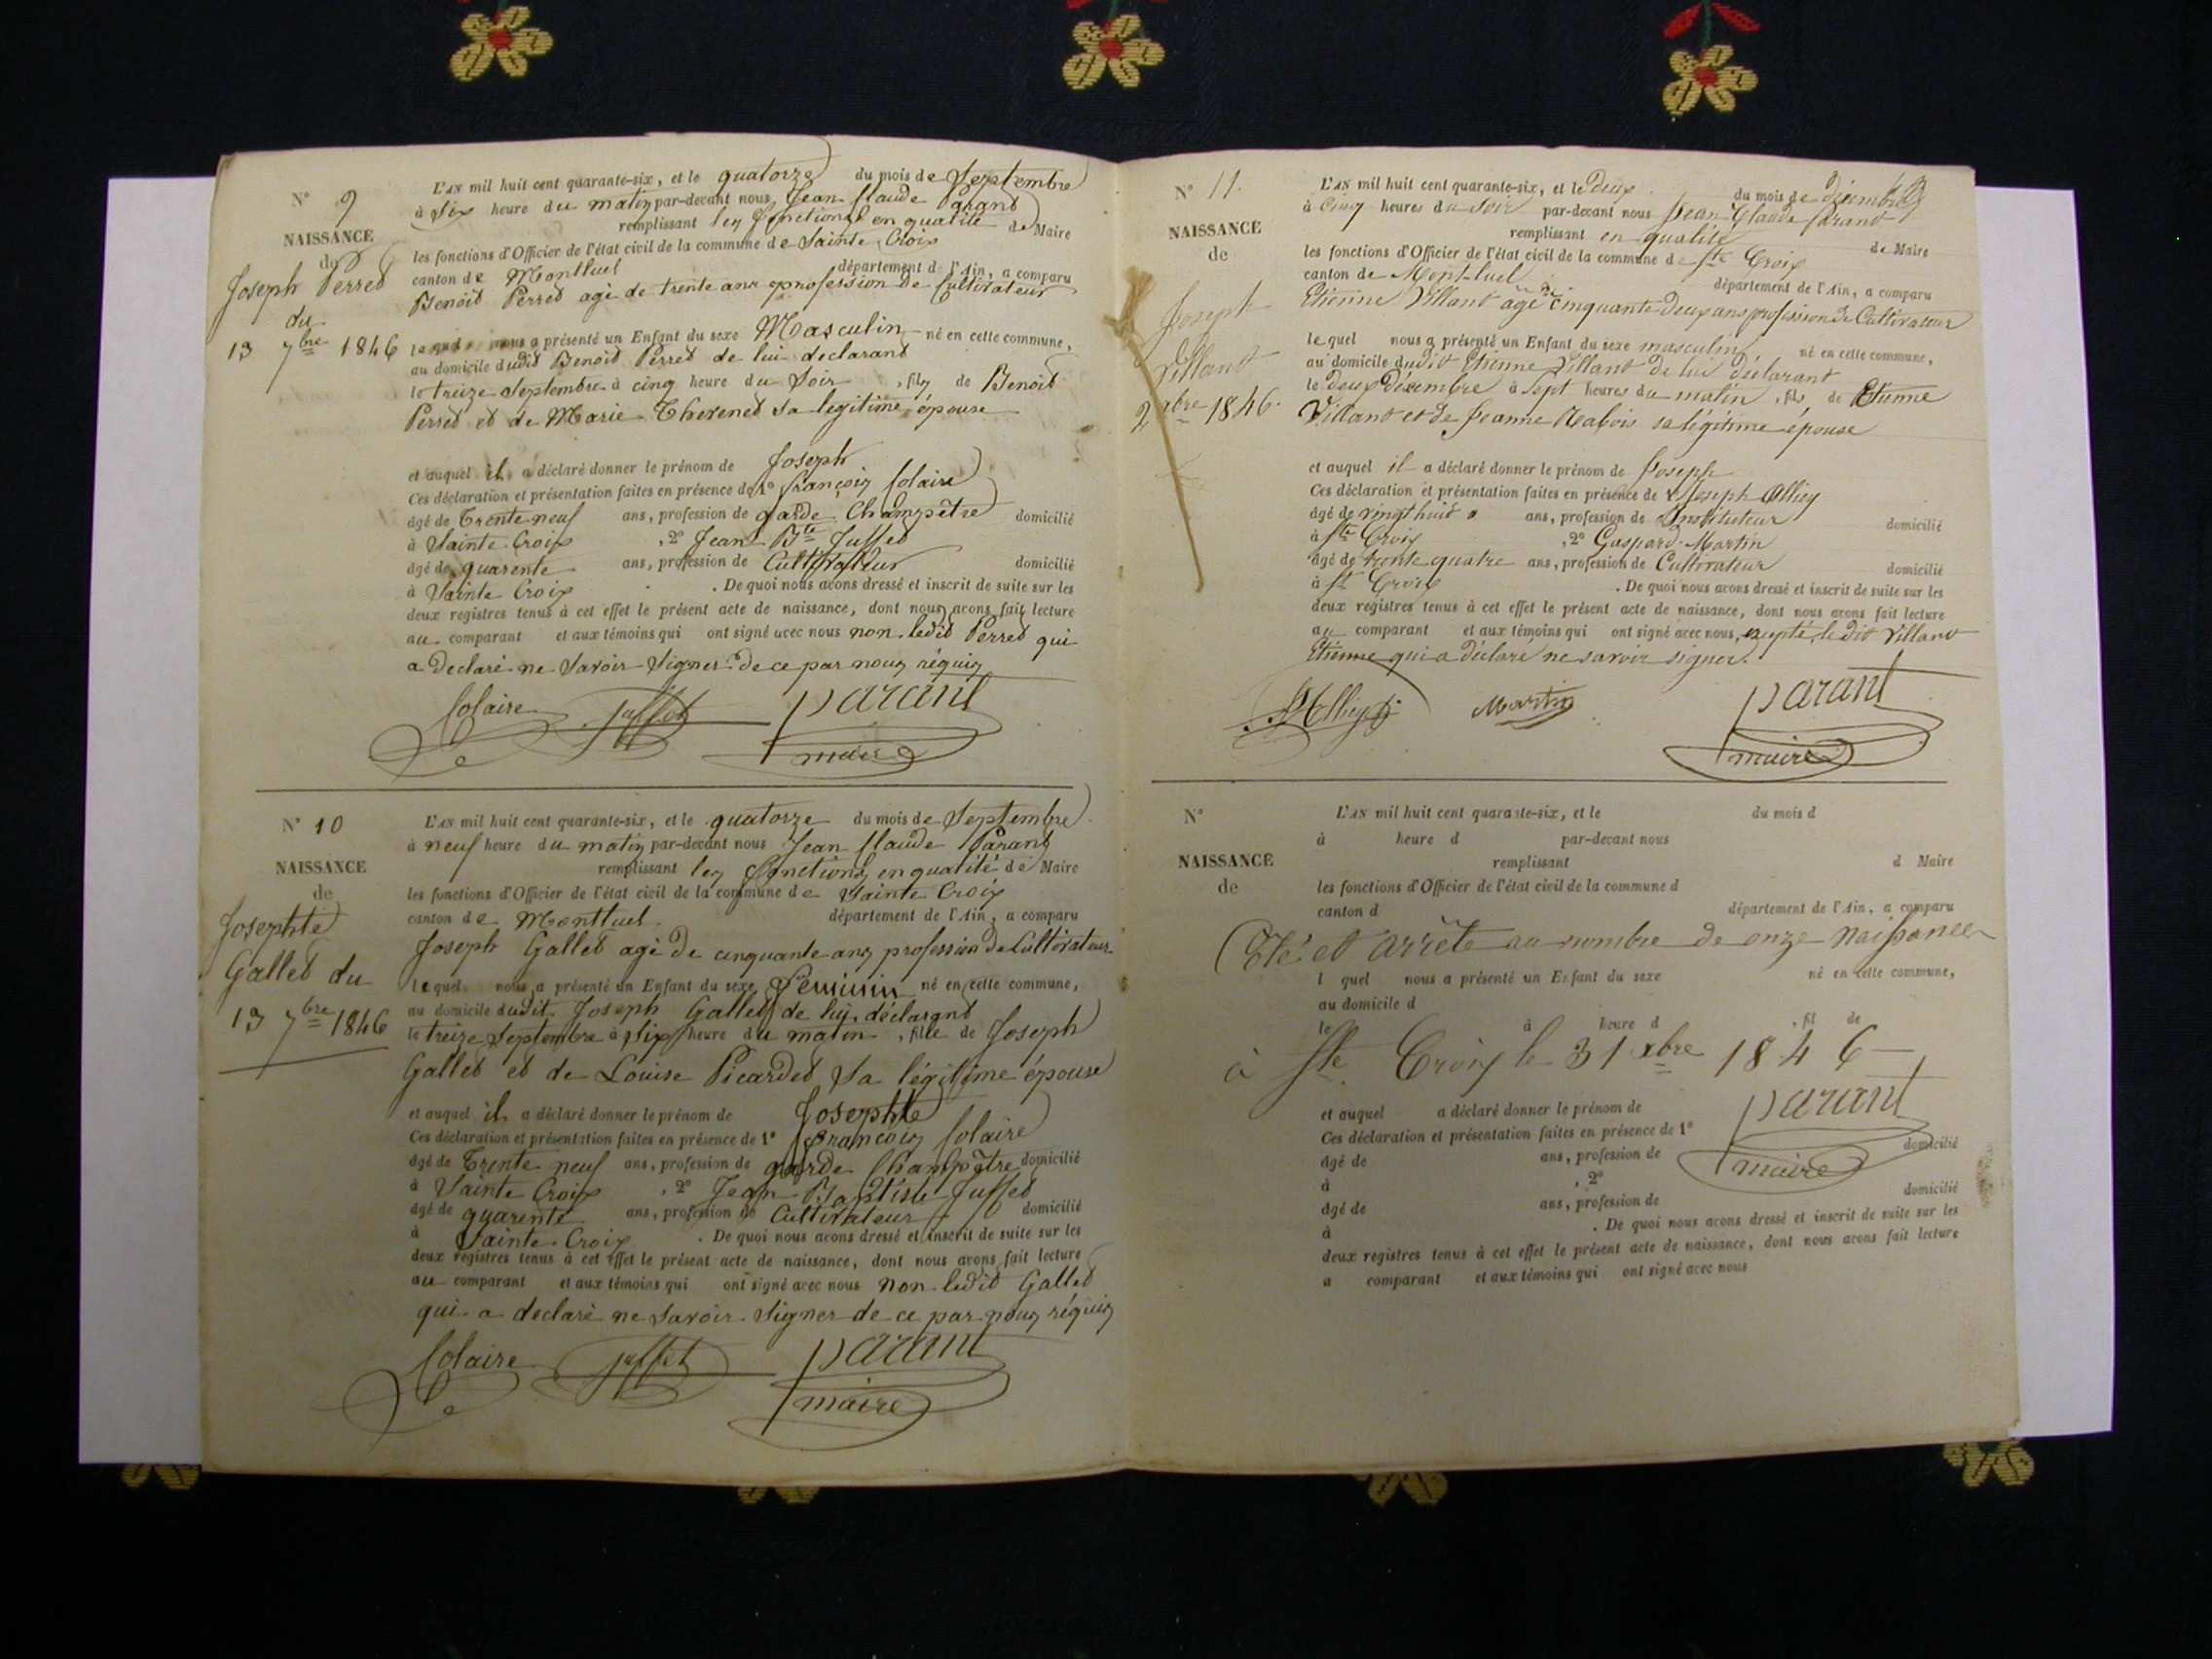 N° 9
NAISSANCE
de
Joseph Perret
du
13 7bre 1846
L'AN mil huit cent quarante-six, et le quatorze du mois de Septembre
à Six heure du matin par-devant nous Jean Claude Parant
remplissant les fonctions en qualité de Maire
les fonctions d'Officier de l'état civil de la commune de Sainte Croix
canton de Montluel département de l'Ain, a comparu
Benoit Perret agé de trente ans profession de Cultivateur
lequel nous a présenté un Enfant du sexe Masculin né en cette commune,
au domicile dudit Benoit Perret de lui declarant
le treize Septembre à cinq heure du Soir, fils de Benoit
Perret et de Marie Thevenet Sa legitime épouse
et auquel il a déclaré donner le prénom de Joseph
Ces déclaration et présentation faites en présence de 1° François Colaire
âgé de Trente neuf ans, profession de garde Champêtre domicilié
à Sainte Croix, 2° Jean Bte Juffet
âgé de quarente ans, profession de Cultivateur domicilié
à Sainte Croix. De quoi nous avons dressé et inscrit de suite sur les
deux registres tenus à cet effet le présent acte de naissance, dont nous avons fait lecture
au comparant et aux témoins qui ont signé avec nous non ledit Perret qui
a declaré ne Savoir Signer de ce par nous réquis
Colaire Juffet parant
maire
N° 10
NAISSANCE
de
Josephte
Gallet du
13 7bre 1846
L'AN mil huit cent quarante-six, et le quatorze du mois de Septembre
à neuf heure du matin par-devant nous Jean Claude Parant
remplissant les fonctions en qualité de Maire
les fonctions d'Officier de l'état civil de la commune de Sainte Croix
canton de Montluel département de l'Ain, a comparu
Joseph Gallet agé de cinquante ans profession de Cultivateur
lequel nous a présenté un Enfant du sexe Feminin né en cette commune,
au domicile dudit Joseph Gallet de lui déclarant
le treize Septembre à Six heure du matin, fille de Joseph
Gallet et de Louise Picardet Sa légitime épouse
et auquel il a déclaré donner le prénom de Josephte
Ces déclaration et présentation faites en présence de 1° François Colaire
âgé de Trente neuf ans, profession de garde Champêtre domicilié
à Sainte Croix, 2° Jean Baptiste Juffet
âgé de quarente ans, profession de Cultivateur domicilié
à Sainte Croix. De quoi nous avons dressé et inscrit de suite sur les
deux registres tenus à cet effet le présent acte de naissance, dont nous avons fait lecture
au comparant et aux témoins qui ont signé avec nous non ledit Gallet
qui a declaré ne Savoir Signer de ce par nous réquis
Colaire Juffet parant
maire
N° 11.
NAISSANCE
de
Joseph
Villant
2 xbre 1846.
L'AN mil huit cent quarante-six, et le Deux du mois de Décembre
à Cinq heures du Soir par-devant nous Jean Claude Parant
remplissant en qualité de Maire
les fonctions d'Officier de l'état civil de la commune de Ste Croix
canton de Mont-luel département de l'Ain, a comparu
Etienne Villant agé de cinquante deux ans profession de Cultivateur
lequel nous a présenté un Enfant du sexe masculin né en cette commune,
au domicile dudit Etienne Villant de lui déclarant
le deux Décembre à Sept heures du matin, fils de Etienne
Villant et de Jeanne Rabois sa légitime épouse
et auquel il a déclaré donner le prénom de Joseph
Ces déclaration et présentation faites en présence de 1° Joseph
âgé de vingt huit ans, profession de Instituteur domicilié
à Ste Croix, 2° Gaspard Martin
âgé de trente quatre ans, profession de Cultivateur domicilié
à Ste Croix. De quoi nous avons dressé et inscrit de suite sur les
deux registres tenus à cet effet le présent acte de naissance, dont nous avons fait lecture
au comparant et aux témoins qui ont signé avec nous, excepté le dit Villant
Etienne qui a déclaré ne savoir signer.
Martin parant
maire
N°
NAISSANCE
de
L'AN mil huit cent quarante-six, et le du mois d
à heure d par-devant nous
remplissant d Maire
les fonctions d'Officier de l'état civil de la commune d
canton d département de l'Ain, a comparu
Clé et arrêté au nombre de onze naissances
l quel nous a présenté un Enfant du sexe né en cette commune,
au domicile d
le à heure d, fil de
à Ste Croix le 31 xbre 1846
et auquel a déclaré donner le prénom de parant
Ces déclaration et présentation faites en présence de 1°
âgé de ans, profession de domicilié
maire
à, 2°
âgé de ans, profession de domicilié
à. De quoi nous avons dressé et inscrit de suite sur les
deux registres tenus à cet effet le présent acte de naissance, dont nous avons fait lecture
a comparant et aux témoins qui ont signé avec nous